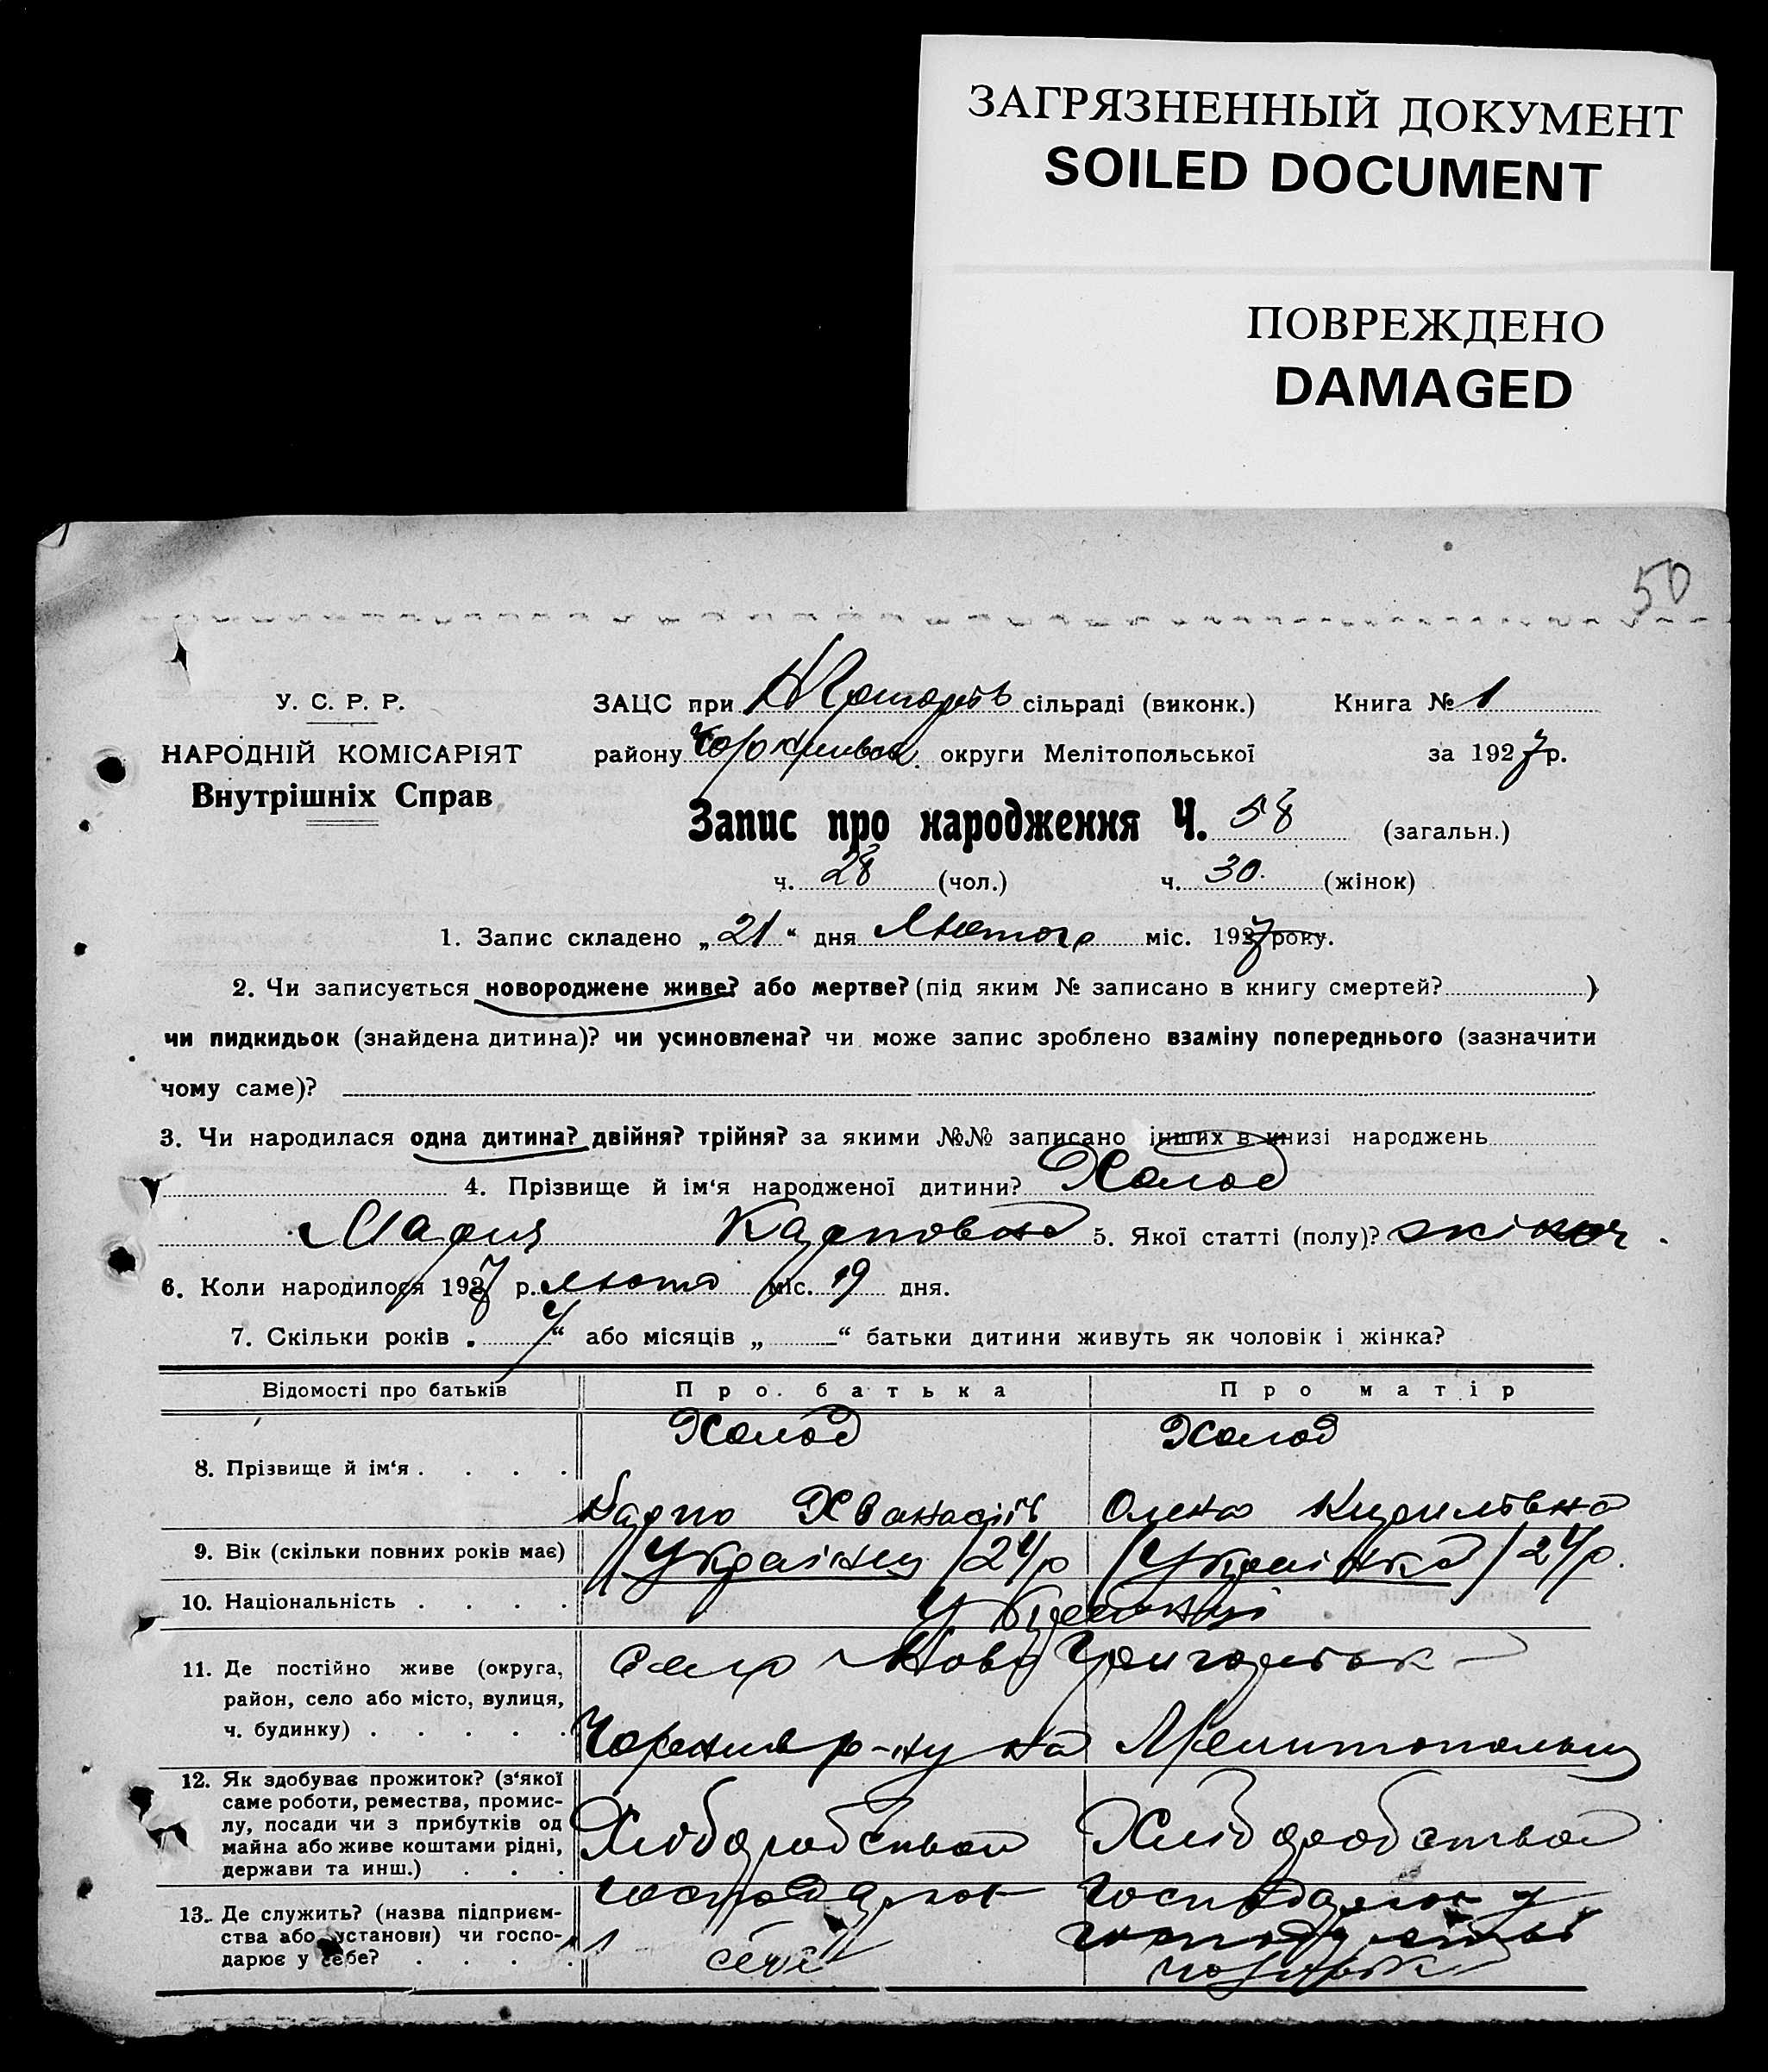 ЗАГРЯЗНЕННЫЙ ДОКУМЕНТ
SOILED DOCUMENT
ПОВРЕЖДЕНО
DAMAGED
50
У. С. Р. Р.
ЗАЦС при сільраді (виконк.) Книга № 1
НАРОДНІЙ КОМІСАРІЯТ
району округи Мелітопольської за 1927 р.
Внутрішніх Справ
Запис про народження Ч. 58 (загальн.)
ч. 28 (чол.) ч. 30. (жінок)
1. Запис складено „21“ дня Лютого міс. 1927 року.
2. Чи записується новороджене живе? або мертве? (під яким № записано в книгу смертей? )
чи пидкидьок (знайдена дитина)? чи усиновлена? чи може запис зроблено взаміну попереднього (зазначити
чому саме)?
3. Чи народилася одна дитина? двійня? трійня? за якими №№ записано інших в книзі народжень
4. Прізвище й ім‘я народженої дитини? Холод
Мария Карповна 5. Якої статті (полу)? жіноч.
6. Коли народилося 1927 р. люто міс. 19 дня.
7. Скільки років „ 4 “ або місяців „ “ батьки дитини живуть як чоловік і жінка?
Відомості про батьків Про батька Про матір
Холод Холод
8. Прізвище й ім‘я
Карпо Олена Кирилівна
9. Вік (скільки повних років має) /Українец/ 24 р /Українка/ 24 р.
10. Національність Українці
11. Де постійно живе (округа, район, село або місто, вулиця, ч. будинку)
село Ново
р-ну на
12. Як здобуває прожиток? (з‘якої
саме роботи, ремества, промис-
лу, посади чи з прибутків од
майна або живе коштами рідні,
держави та инш.)
13. Де служить? (назва підприєм-
ства або установи) чи госпо-
дарює у себе?